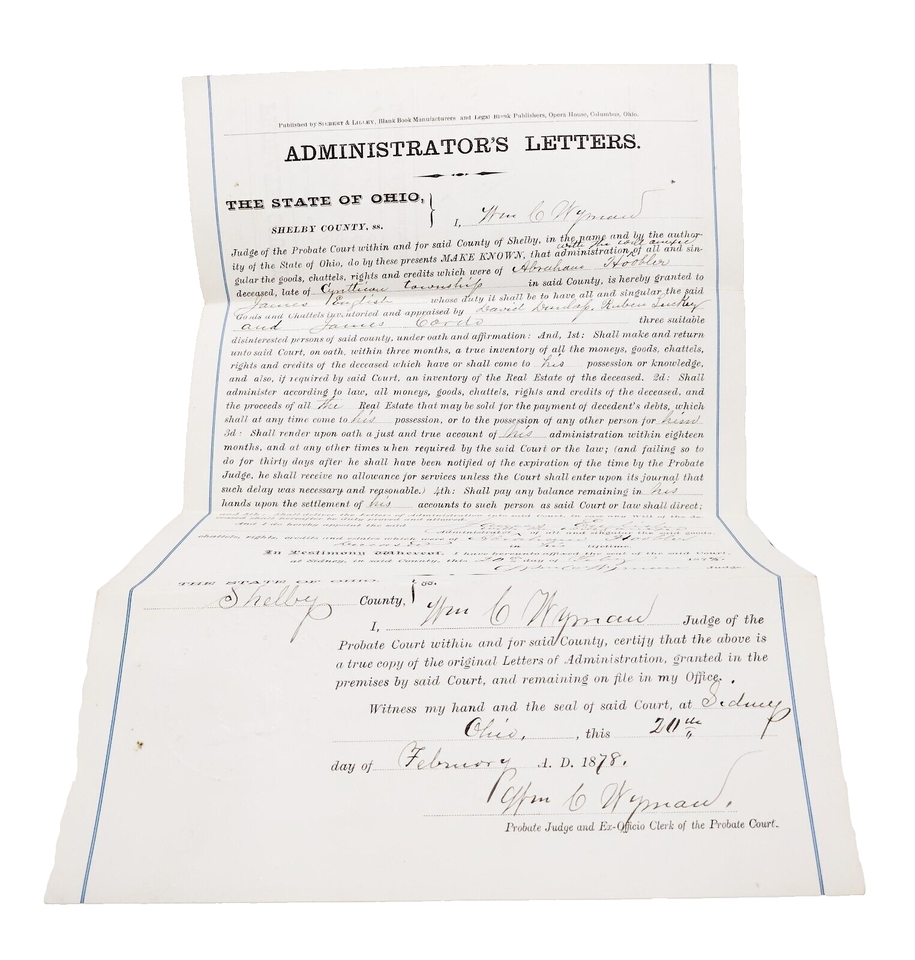 Published by SIEBERT & LILLEY, Blank Book Manufacturers and Legal Blank Publishers, Opera House, Columbus, Ohio.
ADMINISTRATOR'S LETTERS.
THE STATE OF OHIO,
SHELBY COUNTY, ss.
I, Wm C Wyman
Judge of the Probate Court within and for said County of Shelby, in the name and by the author-
with the will annexed
ity of the State of Ohio, do by these presents MAKE KNOWN, that administration of all and sin-
gular the goods, chattels, rights and credits which were of Abraham Hoobler
deceased, late of Cynthian township in said County, is hereby granted to
James English whose duty it shall be to have all and singular the said
Goods and Chattels inventoried and appraised by David Dunlap, Ruben
and James three suitable
disinterested persons of said county, under oath and affirmation: And, 1st: Shall make and return
unto said Court, on oath, within three months, a true inventory of all the moneys, goods, chattels,
rights and credits of the deceased which have or shall come to his possession or knowledge,
and also, if required by said Court, an inventory of the Real Estate of the deceased. 2d: Shall
administer according to law, all moneys, goods, chattels, rights and credits of the deceased, and
the proceeds of all the Real Estate that may be sold for the payment of decedent's debts, which
shall at any time come to his possession, or to the possession of any other person for him
3d: Shall render upon oath a just and true account of his administration within eighteen
months, and at any other times when required by the said Court or the law; (and failing so to
do for thirty days after he shall have been notified of the expiration of the time by the Probate
Judge, he shall receive no allowance for services unless the Court shall enter upon its journal that
such delay was necessary and reasonable.) 4th: Shall pay any balance remaining in his
hands upon the settlement of his accounts to such person as said Court or law shall direct;
And I do hereby appoint the said
Administrator of all and singular the said goods,
chattels, rights, credits and estate which were of Hoobler
deceased in his lifetime.
In Testimony Whereof, I have hereunto affixed the seal of the said Court,
at Sidney, in said County, this 20th day of 1878.
Judge.
THE STATE OF OHIO,
Shelby County, ss.
I, Wm C Wyman Judge of the
Probate Court within and for said County, certify that the above is
a true copy of the original Letters of Administration, granted in the
premises by said Court, and remaining on file in my Office.
Witness my hand and the seal of said Court, at Sidney
Ohio, , this 20th
day of February A. D. 1878.
Wm C Wyman.
Probate Judge and Ex-Officio Clerk of the Probate Court.